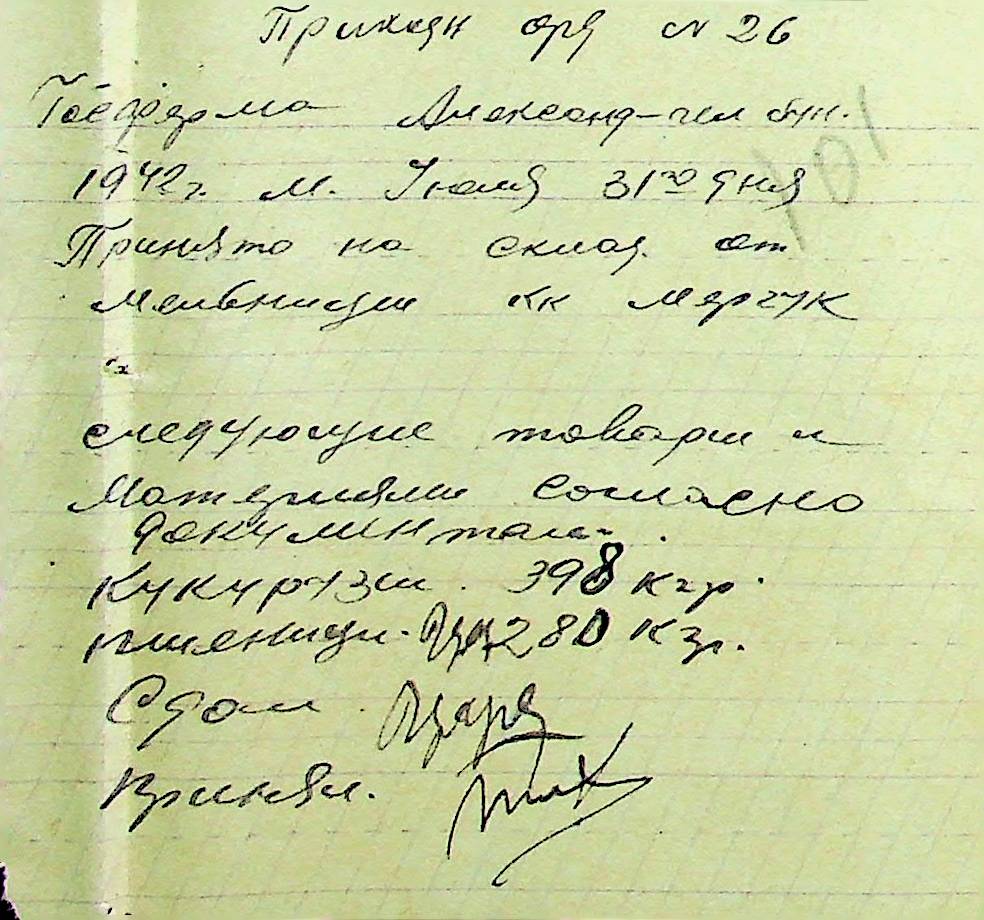 Приходн орд N 26
Госферма Александ-гельбун.
1942г. М. Июля 31го дня
Принято на склад от
мельници кк Мерчук
следующие товари и
Материяли согласно
документам.
Кукурузи. 398 кгр.
пшеници. 280 кгр.
Сдал.
Принял.
101